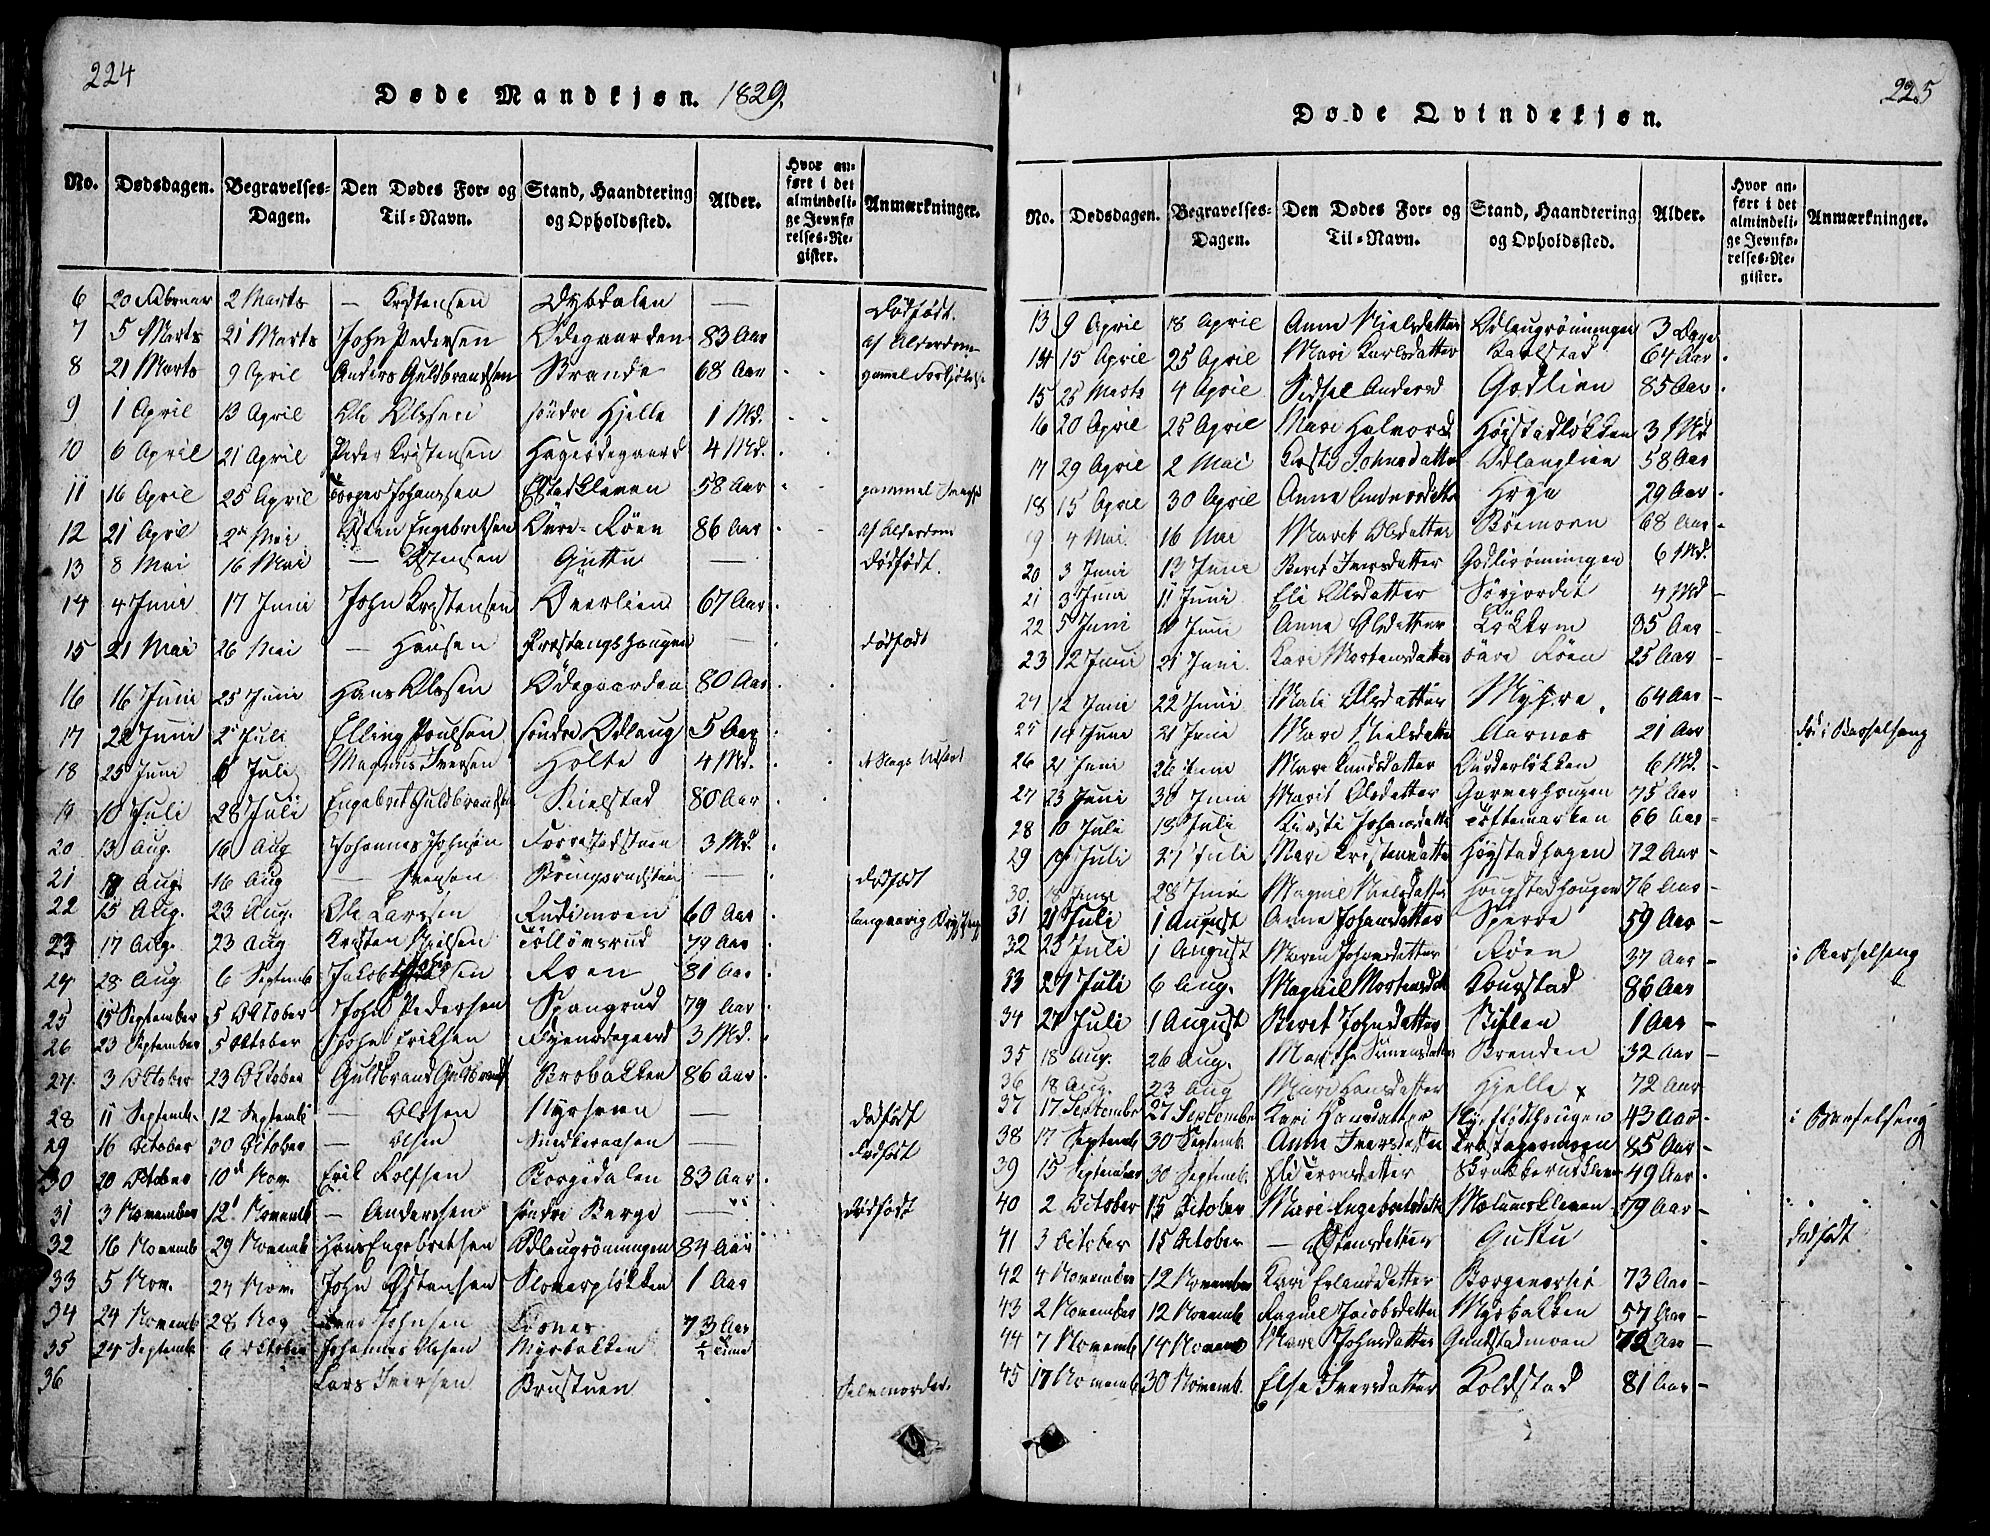 224
Døde Mandkjøn. 1829.
No. Dødsdagen. Begravelses-Dagen. Den Dødes For- og Til-Navn. Stand, Haandtering og Opholdssted. Alder. Hvor anført i det almindelige Jevnførelses-Register. Anmærkninger.
6 20 Februar 2 Marts — Kristensen Dybdalen — Dødfødt.
7 5 Marts 21 Marts John Pedersen Ødegaarden 83 Aar Af Alderdom
8 21 Marts 9 April Anders Guldbrandsen Strande 68 Aar gamel
9 1 April 13 April Ole Olssen søndre Hjelle 1 Md.
10 6 April 21 April Peder Kristensen Hageødegaard 4 Md.
11 16 April 25 April Johansen 58 Aar gammel
12 21 April 2 Mai Østen Engebretsen Øvre-Røen 86 Aar Af Alderdom
13 8 Mai 16 Mai — Østensen Guttu — Dødfødt.
14 4 Juni 17 Juni John Kristensen Øverlien 67 Aar
15 21 Mai 26 Mai — Hansen Præstangshaugen — Dødfødt
16 16 Juni 25 Juni Hans Olssen Ødegaarden 80 Aar
17 22 Juni 2 Juli Elling Poulsen søndre Ødlaug 5 Aar
18 25 Juni 6 Juli Magnus Iversen Holte 4 Md.
19 10 Juli 28 Juli Engebret Guldbrands Kielstad 80 Aar
20 13 Aug. 16 Aug Johannes Johnsen 3 Md.
21 Aug. 16 Aug — Iversen — Dødfødt
22 15 Aug. 23 Aug. Ole Larssen Rudimoen 60 Aar
23 17 Aug. 23 Aug Kristen Nielsen Tollønsrud 79 Aar
24 28 Aug 6 Septemb Jakob Røen 81 Aar
25 15 September 5 Oktober John Pedersen Spangrud 79 Aar
26 23 September 5 Oktober John Eriksen 3 Md.
27 3 Oktober 23 Oktober Guldbrand Guldbrands Brobakken 86 Aar
28 11 Septemb. 12 Septemb — Olssen — Dødfødt
29 16 October 30 October — Olsen — Dødfødt
30 20 October 10 Nov. Erik Rolfsen Borgedalen 83 Aar
31 3 November 12 Novemb — Andersen søndre Berge — Dødfødt
32 16 Novemb 29 Novemb Hans Engebretsen Ødlaugrøningen 84 Aar
33 5 Nov. 24 Nov. John Østensen Sloverpløkken 1 Aar
34 24 Novemb 28 Nov Johnsen 73 Aar
35 24 Septemb 6 Oktober Johannes Olssen Myrbakken ½ Time
36 Lars Iversen Brustuen Selvmorder.
225
Døde Qvindekjøn.
No. Dødsdagen. Begravelses-Dagen. Den Dødes For- og Til-Navn. Stand, Haandtering og Opholdssted. Alder. Hvor anført i det almindelige Jevnførelses-Register. Anmærkninger.
13 9 April 18 April Anne Nielsdatter Ødlaugrøningen 3 Dage
14 15 April 25 April Mari Karlsdatter Karlstad 64 Aar
15 25 Marts 4 April Sidsel Andersd Godlien 85 Aar
16 20 April 25 April Mari Halvorsd. Høistadløkken 3 Md
17 29 April 2 Mai Kirsti Johnsdatter Ødlauglien 58 Aar
18 15 April 30 April Anne Andersdatter 29 Aar
19 4 Mai 16 Mai Marit Olsdatter Bøemoen 68 Aar
20 3 Juni 13 Juni Berit Iversdatter Godlirøningen 6 Md.
21 3 Juni 11 Juni Eli Olsdatter Sørjordet 4 Md
22 5 Juni Juni Anne Olsdatter 85 Aar
23 12 Juni 21 Juni Kari Mortensdatter øvre Røen 25 Aar
24 12 Juni 22 Juni Mari Olsdatter Myhre 64 Aar
25 14 Juni 21 Juni Mari Nielsdatter Aarnes 21 Aar død i Barselseng
26 21 Juni 26 Juni Mari Knudsdatter 6 Md.
27 23 Juni 30 Juni Marit Olsdatter Garverhougen 75 Aar
28 10 Juli 18 Juli Kirsti Johansdatter Toftemarken 66 Aar
29 19 Juli 27 Juli Mari Kristensdatter Høystadhagen 72 Aar
30 18 Juni 28 Juni Magnil Nielsdatter hougstadhougen 76 Aar
31 21 Juli 1 August Anne Johansdatter Sperre 59 Aar
32 23 Juli 1 August Maren Johansdatter Røen 37 Aar i Barselseng
33 27 Juli 6 Aug. Magnil Mortensdat Kourstad 86 Aar
34 27 Juli 1 August Beret Johnsdatter 1 Aar
35 18 Aug. 26 Aug. Marthe Simensdatter Brenden 32 Aar
36 18 Aug. 23 Aug Mari Hansdatter Hjelle x 72 Aar
37 17 September 27 September Kari Hansdatter 43 Aar i Barselseng
38 17 Septemb 30 Septemb. Anne Iversdatter 85 Aar
39 15 September 30 Septemb. Eli Tronsdatter 49 Aar
40 2 October 15 October Mari Engebretsdatte Molumskleven 79 Aar
41 3 October 15 October — Østensdatter Guttu Dødfødt
42 4 November 12 November Kari Erlandsdatter Borgenorsie 73 Aar
43 2 November 12 Novemb Ragnil Jacobsdatter Myrbakken 57 Aar
44 7 Novemb 14 Novemb Mari Johnsdatter Gundstadmoen 72 Aar
45 17 Novemb 30 Novemb. Else Iversdatter Koldstad 81 Aar